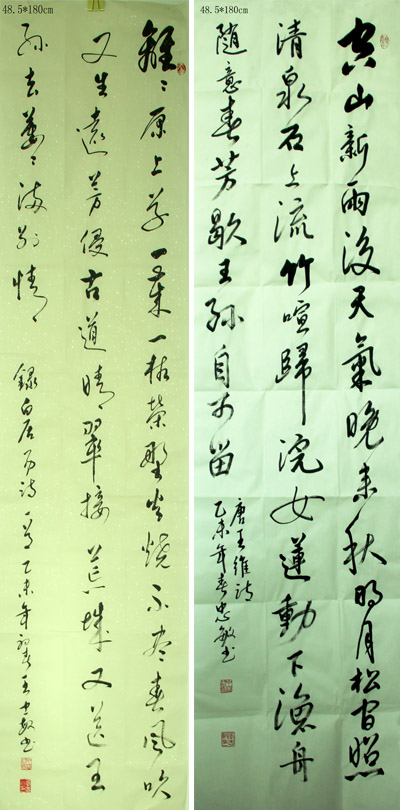 48.5*180cm
離〻原上草一歲一枯榮野火燒不尽春風吹
又生遠芳侵古道晴翠接荒城又送王
孫去萋〻满别情 録白居易詩一首乙未年初春王忠敏书
48.5*180cm
空山新雨後天氣晚来秋明月松间照
清泉石上流竹喧歸浣女蓮動下漁舟
随意春芳歇王孫自可留
唐王維詩
乙未年春忠敏书